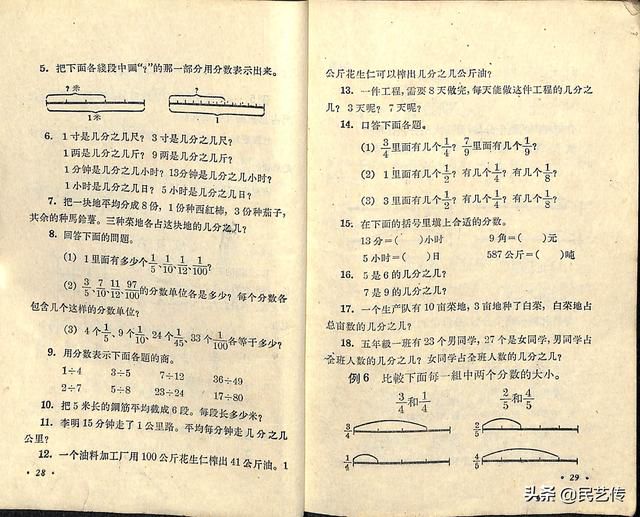 5. 把下面各綫段中画“?”的那一部分用分数表示出来。
? 米
1 米
?
1
6. 1寸是几分之几尺? 3寸是几分之几尺?
1两是几分之几斤? 9两是几分之几斤?
1分钟是几分之几小时? 13分钟是几分之几小时?
1小时是几分之几日? 5小时是几分之几日?
7. 把一块地平均分成8份, 1份种西紅柿, 3份种茄子,
其余的种馬鈴薯。三种菜地各占这块地的几分之几?
8. 回答下面的問題。
(1) 1里面有多少个1/5、1/10、1/12、1/100?
(2) 3/5、7/10、11/12、97/100的分数单位各是多少? 每个分数各
包含几个这样的分数单位?
(3) 4个1/5, 9个1/10, 24个1/45, 33个1/100各等于多少?
9. 用分数表示下面各题的商。
1÷4 3÷5 7÷12 36÷49
2÷7 5÷8 23÷24 17÷80
10. 把5米长的鋼筋平均截成6段。每段长多少米?
11. 李明15分钟走了1公里路。平均每分钟走几分之几
公里?
12. 一个油料加工厂用100公斤花生仁榨出41公斤油。1
· 28 ·
公斤花生仁可以榨出几分之几公斤油?
13. 一件工程, 需要8天做完, 每天能做这件工程的几分之
几? 3天呢? 7天呢?
14. 口答下面各题。
(1) 3/4里面有几个1/4? 7/9里面有几个1/9?
(2) 1里面有几个1/2? 有几个1/4? 有几个1/8?
(3) 3里面有几个1/2? 有几个1/4? 有几个1/8?
15. 在下面的括号里填上合适的分数。
13分=( )小时 9角=( )元
5小时=( )日 587公斤=( )吨
16. 5是6的几分之几?
7是9的几分之几?
17. 一个生产队有10亩菜地, 3亩地种了白菜, 白菜地占
总亩数的几分之几?
18. 五年级一班有23个男同学, 27个是女同学, 男同学占
全班人数的几分之几? 女同学占全班人数的几分之几?
例6 比較下面每一組中两个分数的大小。
3/4和1/4 2/5和4/5
3/4 2/5
1/4 4/5
· 29 ·
头条 @民艺传